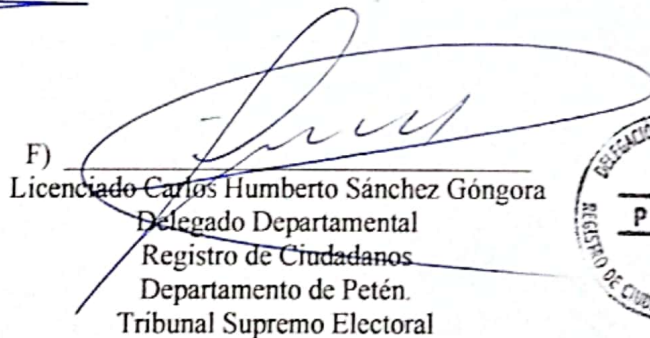 F)
Licenciado Carlos Humberto Sánchez Góngora
Delegado Departamental
Registro de Ciudadanos
Departamento de Petén.
Tribunal Supremo Electoral
P
REGISTRO DE